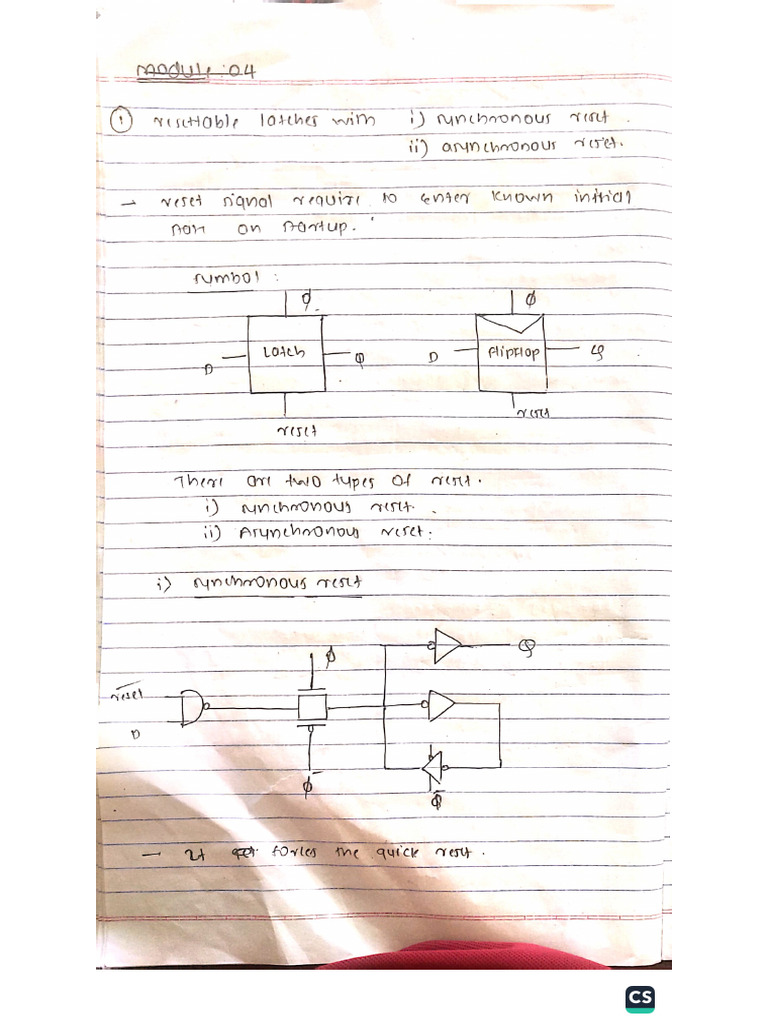 Module 04
① resettable latches with i) synchronous reset.
ii) asynchronous reset.
→ reset signal require to enter known initial
on startup.
symbol:
φ φ
D Latch Q D flipflop Q
reset reset
There are two types of reset.
i) synchronous reset.
ii) Asynchronous reset.
i) synchronous reset
φ Q
reset
D
φ̄ φ̄
— It forces the quick reset.
CS